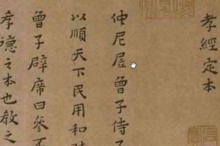 孝經定本
仲尼凥曾子侍子
以順天下民用和睦
曾子辟席曰參不
孝德之本也敎之